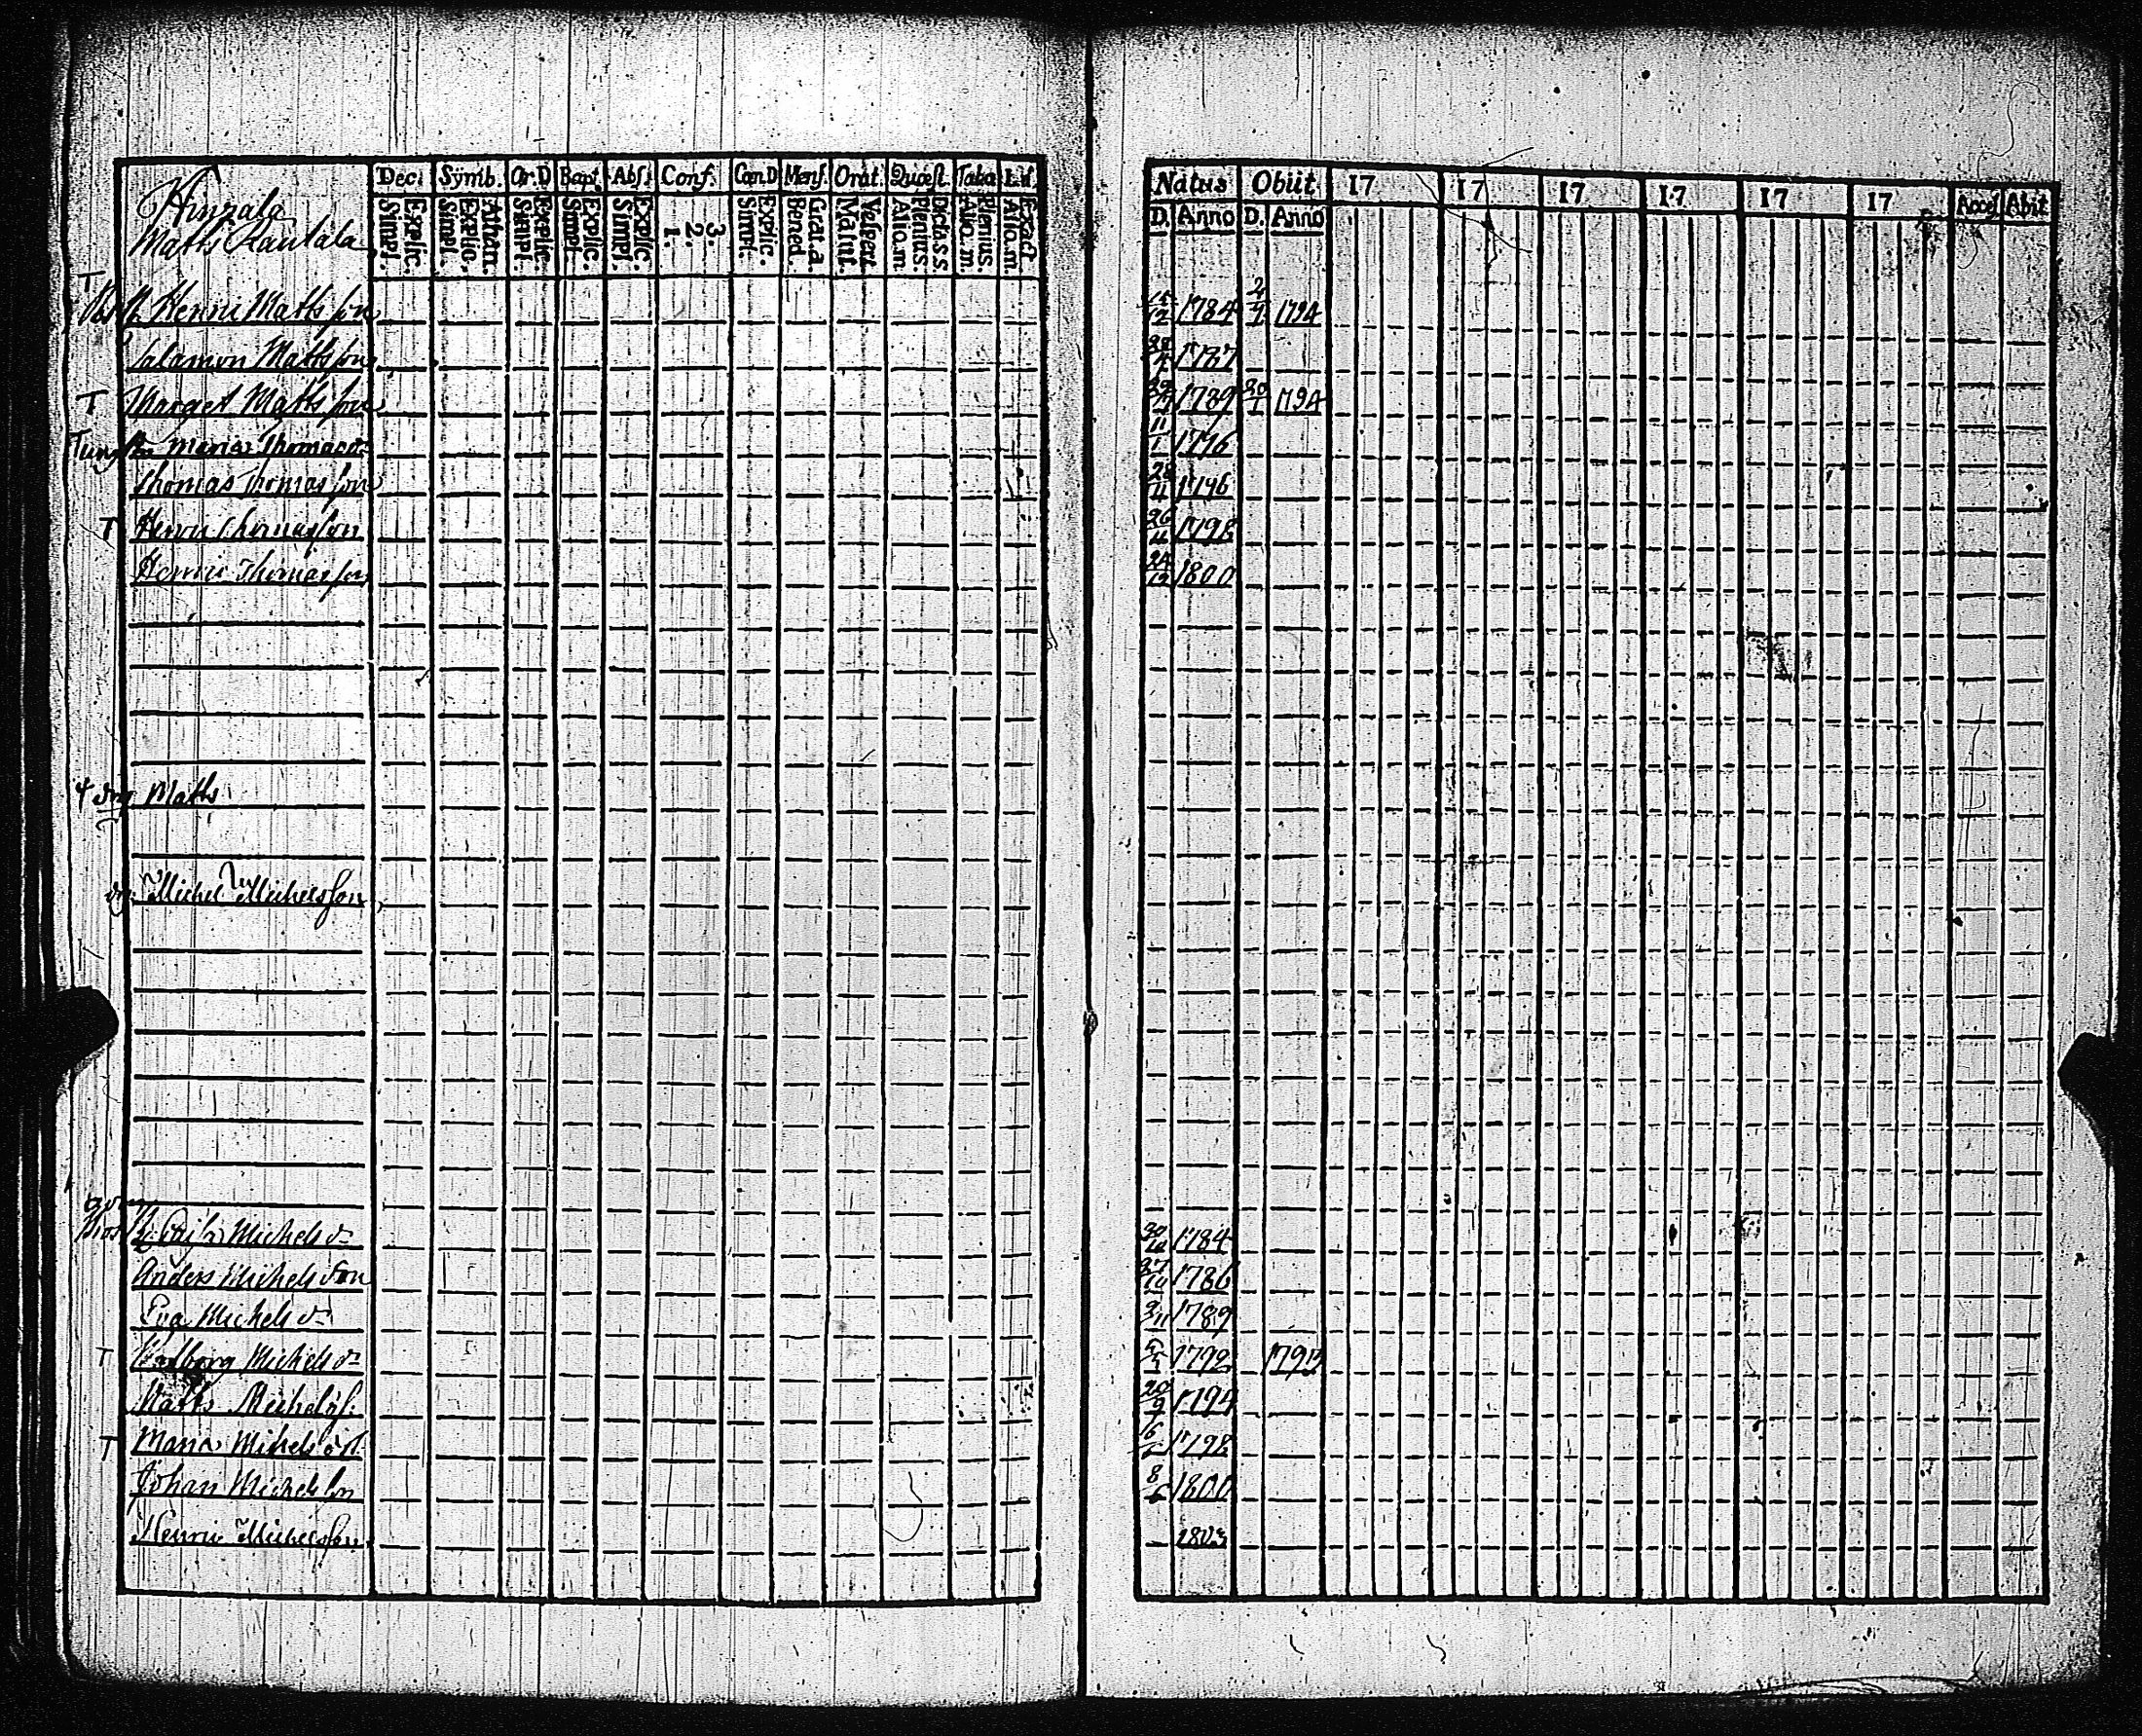 Dec. Symb. Or.D Bapt. Abs. Conf. Cœn.D Mens. Orat. Quæst. Taba
Simpl. Explic. Simpl. Explic. Athan. Simpl. Explic. Simpl. Explic. Simpl. Explic. 1. 2. 3. Simpl. Explic. Bened. Grat.a. Matut. Vespert. Alio.m Plenius. Dicta s s. Alio.m Plenius. Alio.m Exact
Matts Kautala
Henric Matts son
Salamon Mattsson
T Marget Matts son
Maria Thomasd:
Thomas Thomas son
T Henric Thomasson
Henric Thomasson
Matts
Michel Michelsson
Michels d:
Anders Michels son
Eva Michels d:
T Walborg Michels d:
Matts Michelss:
T Maria Michels dr
Johan Michels son
Henric Michelsson
Natus Obiit 17 17 17 17 17 17 Acces Abit
D. Anno D. Anno
1784 1794
1787
1789 1794
11/1 1796
28/11 1796
26/4 1798
1800
1784
27/10 1786
1789
1792
20/9 1794
1798
8/6 1800
1803